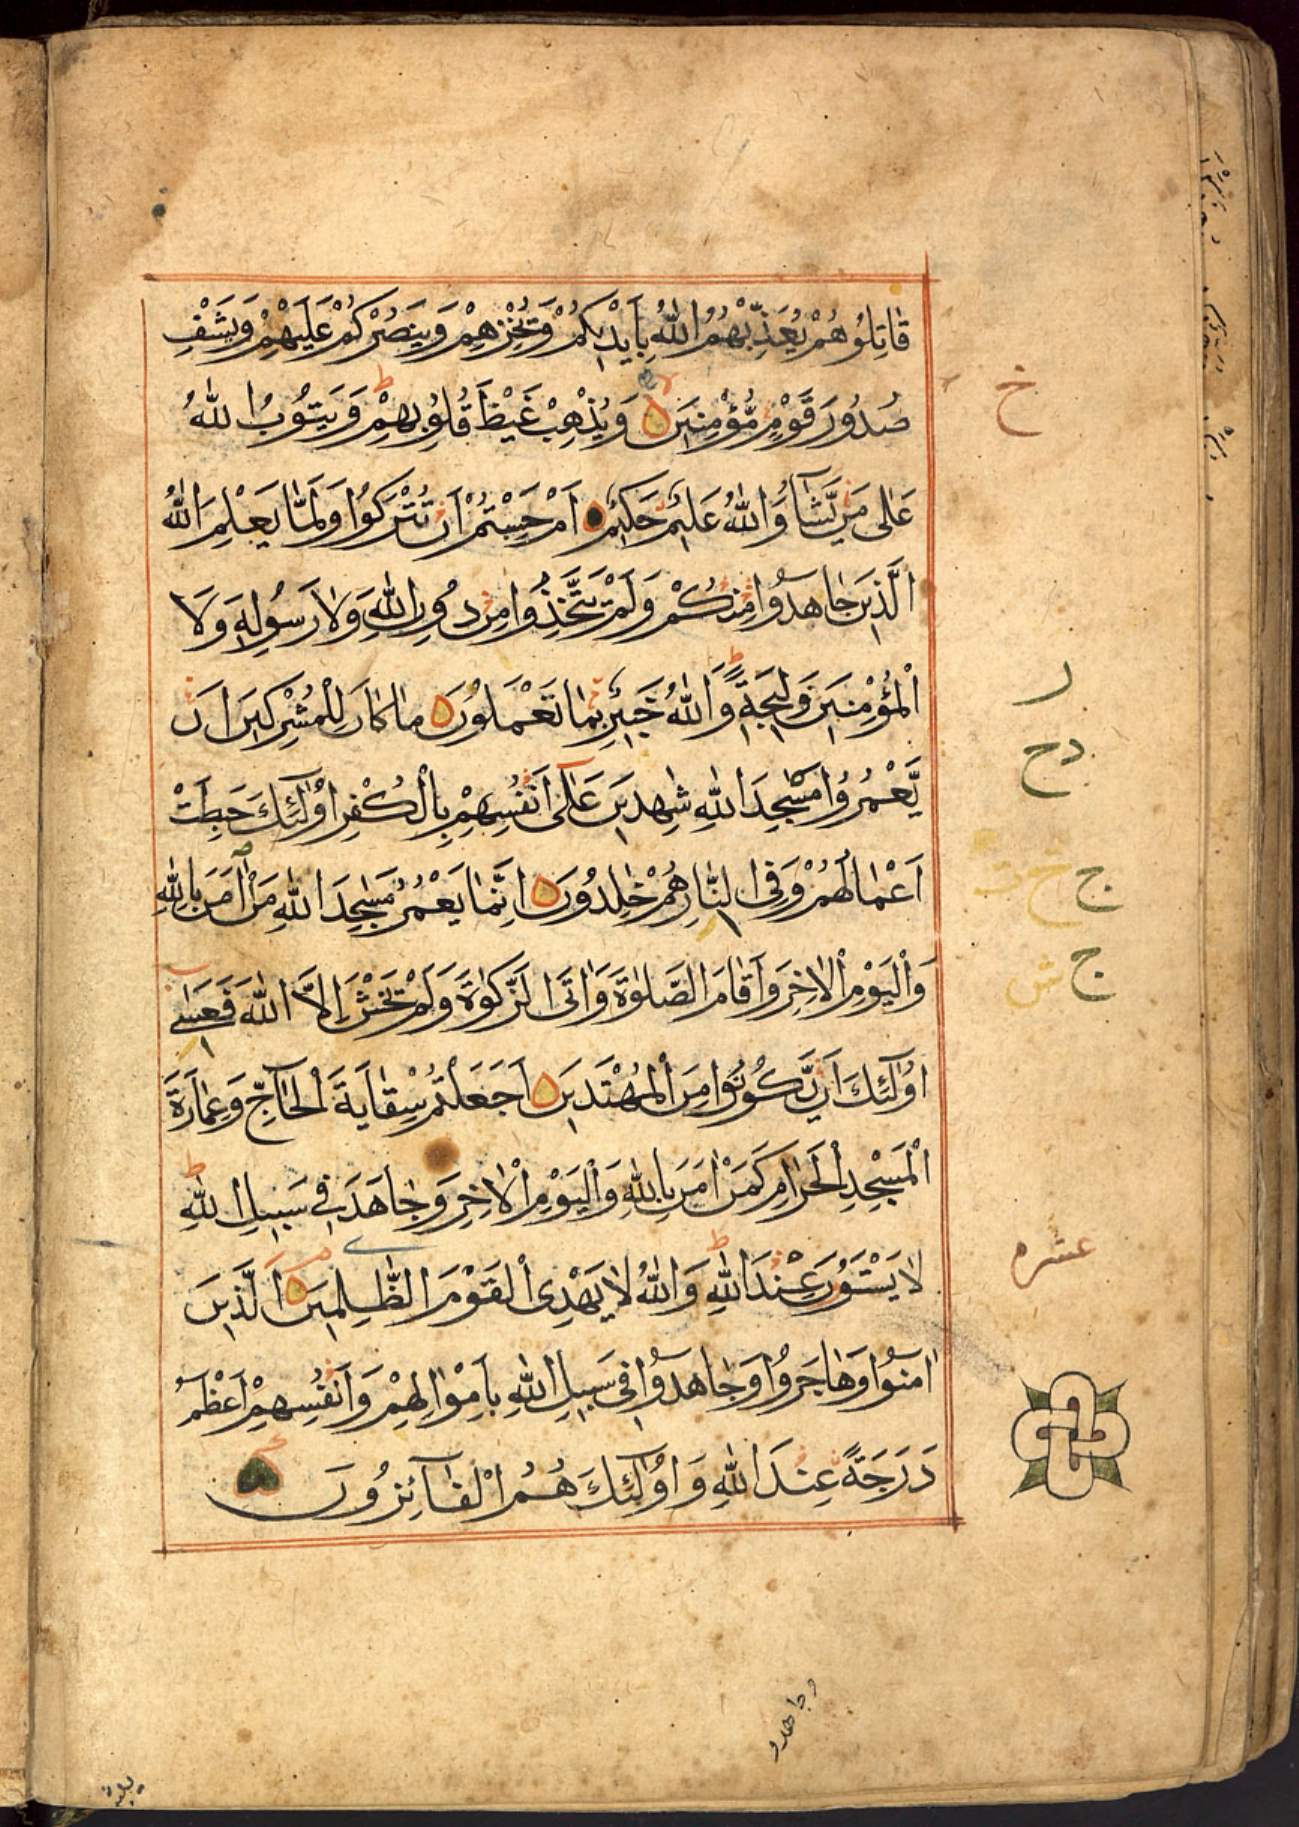 قَاتِلُوهُمْ يُعَذِّبْهُمُ اللّٰهُ بِاَيْدِيكُمْ وَيُخْزِهِمْ وَيَنْصُرْكُمْ عَلَيْهِمْ وَيَشْفِ
صُدُورَ قَوْمٍ مُّؤْمِنِينَ وَيُذْهِبْ غَيْظَ قُلُوبِهِمْ وَيَتُوبُ اللّٰهُ
عَلٰى مَنْ يَّشَآءُ وَاللّٰهُ عَلِيمٌ حَكِيمٌ اَمْ حَسِبْتُمْ اَنْ تُتْرَكُوا وَلَمَّا يَعْلَمِ اللّٰهُ
الَّذِينَ جَاهَدُوا مِنْكُمْ وَلَمْ يَتَّخِذُوا مِنْ دُونِ اللّٰهِ وَلَا رَسُولِهِ وَلَا
الْمُؤْمِنِينَ وَلِيجَةً وَاللّٰهُ خَبِيرٌ بِمَا تَعْمَلُونَ مَا كَانَ لِلْمُشْرِكِينَ اَنْ
يَّعْمُرُوا مَسٰجِدَ اللّٰهِ شٰهِدِينَ عَلٰٓى اَنْفُسِهِمْ بِالْكُفْرِ اُولٰٓئِكَ حَبِطَتْ
اَعْمَالُهُمْ وَفِى النَّارِ هُمْ خٰلِدُونَ اِنَّمَا يَعْمُرُ مَسٰجِدَ اللّٰهِ مَنْ اٰمَنَ بِاللّٰهِ
وَالْيَوْمِ الْاٰخِرِ وَاَقَامَ الصَّلٰوةَ وَاٰتَى الزَّكٰوةَ وَلَمْ يَخْشَ اِلَّا اللّٰهَ فَعَسٰٓى
اُولٰٓئِكَ اَنْ يَّكُونُوا مِنَ الْمُهْتَدِينَ اَجَعَلْتُمْ سِقَايَةَ الْحَآجِّ وَعِمَارَةَ
الْمَسْجِدِ الْحَرَامِ كَمَنْ اٰمَنَ بِاللّٰهِ وَالْيَوْمِ الْاٰخِرِ وَجَاهَدَ فِى سَبِيلِ اللّٰهِ
لَا يَسْتَوُنَ عِنْدَ اللّٰهِ وَاللّٰهُ لَا يَهْدِى الْقَوْمَ الظّٰلِمِينَ اَلَّذِينَ
اٰمَنُوا وَهَاجَرُوا وَجَاهَدُوا فِى سَبِيلِ اللّٰهِ بِاَمْوَالِهِمْ وَاَنْفُسِهِمْ اَعْظَمُ
دَرَجَةً عِنْدَ اللّٰهِ وَاُولٰٓئِكَ هُمُ الْفَآئِزُونَ
خ
ر
دح
ج خ ت
ج ش
عشره
وجاهدو